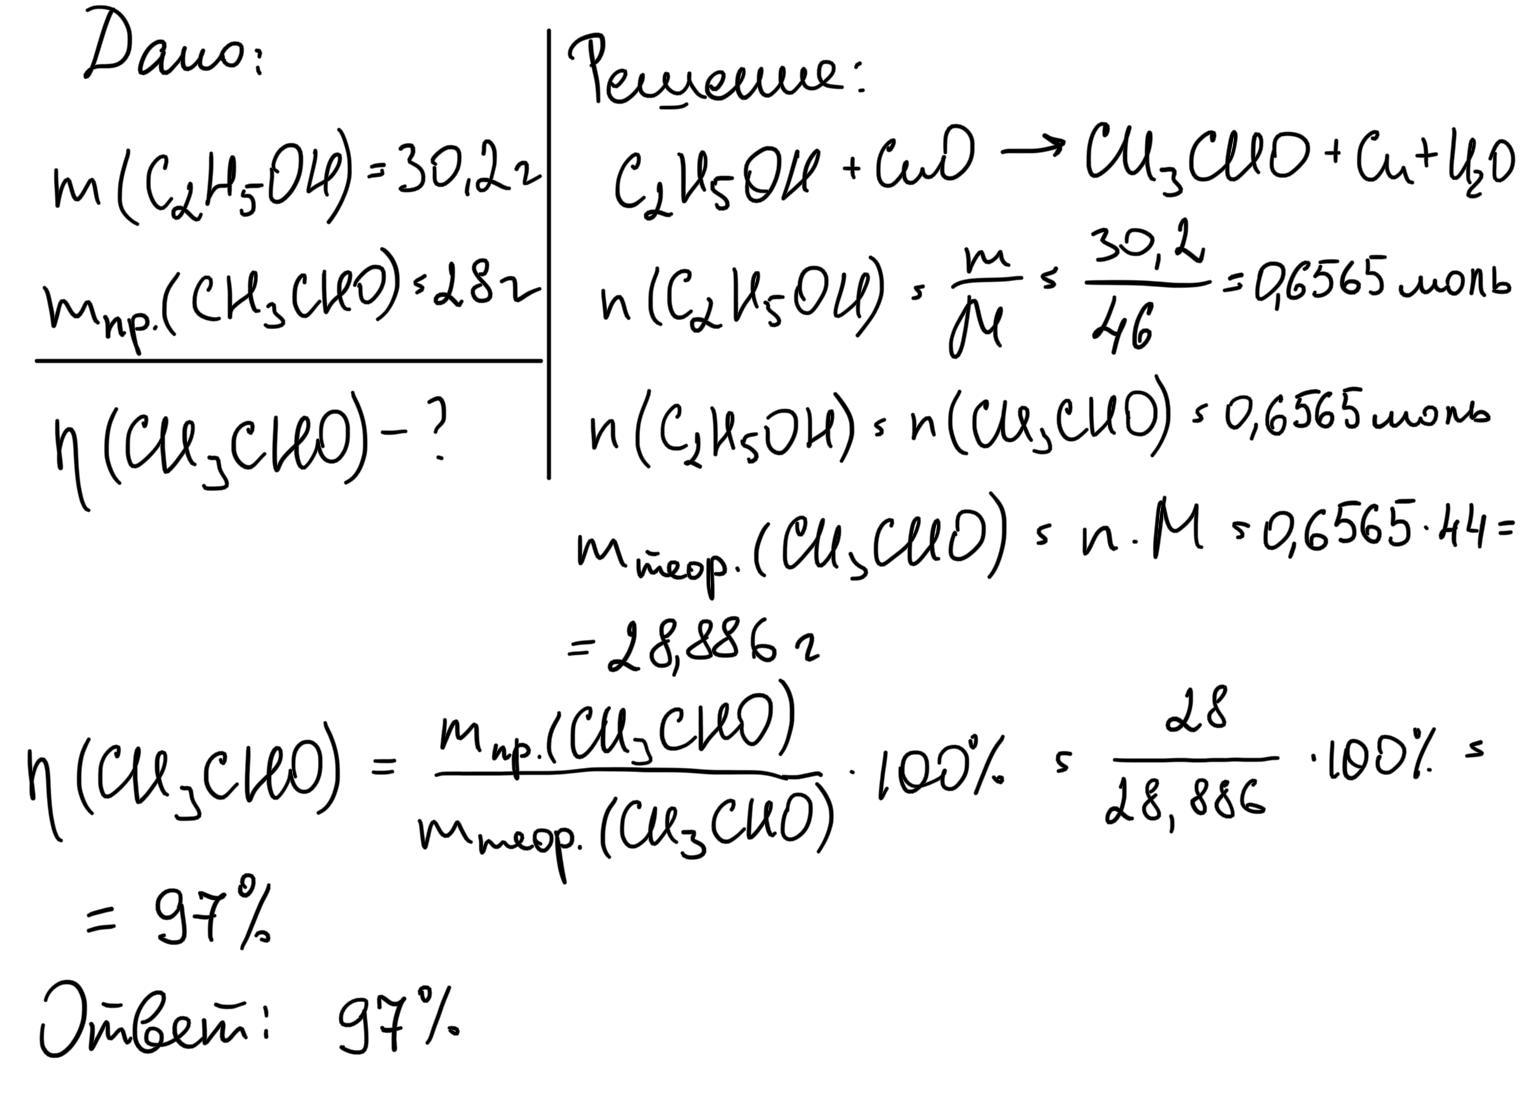 Дано:
m(C₂H₅OH)=30,2г
mпр.(CH₃CHO)=28г
η(CH₃CHO)-?
Решение:
C₂H₅OH + CuO → CH₃CHO + Cu + H₂O
n(C₂H₅OH) = m/M = 30,2/46 = 0,6565 моль
n(C₂H₅OH) = n(CH₃CHO) = 0,6565 моль
mтеор.(CH₃CHO) = n · M = 0,6565 · 44 =
= 28,886 г
η(CH₃CHO) = mпр.(CH₃CHO)/mтеор.(CH₃CHO) · 100% = 28/28,886 · 100% =
= 97%
Ответ: 97%